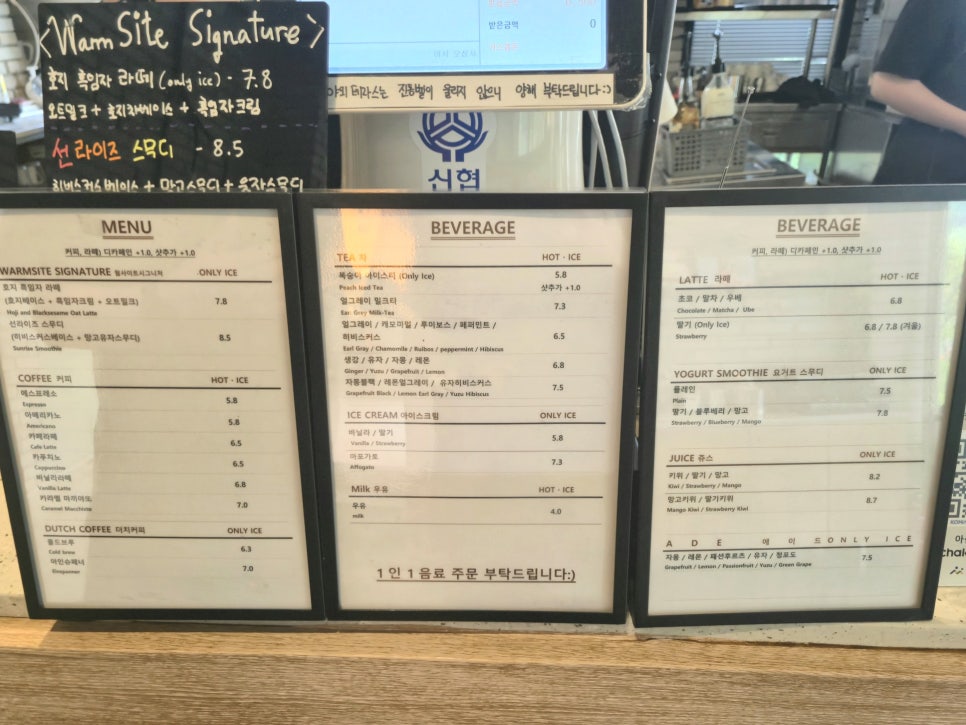 <Warm Site Signature>
호지 흑임자 라떼 (only ice) - 7.8
오트밀크 + 호지차베이스 + 흑임자크림
선라이즈 스무디 - 8.5
히비스커스베이스 + 망고스무디 + 유자스무디
받은금액 0
테라스는 진동벨이 울리지 않으니 양해 부탁드립니다:)
신협
MENU
커피, 라떼) 디카페인 +1.0, 샷추가 +1.0
WARMSITE SIGNATURE 웜사이트시그니처 ONLY ICE
호지 흑임자 라떼
(호지베이스 + 흑임자크림 + 오트밀크) 7.8
Hoji and Blacksesame Oat Latte
선라이즈 스무디
(히비스커스베이스 + 망고유자스무디) 8.5
Sunrise Smoothie
COFFEE 커피 HOT · ICE
에스프레소 5.8
Espresso
아메리카노 5.8
Americano
카페라떼 6.5
Café Latte
카푸치노 6.5
Cappuccino
바닐라라떼 6.8
Vanilla Latte
카라멜 마끼아또 7.0
Caramel Macchiato
DUTCH COFFEE 더치커피 ONLY ICE
콜드브루 6.3
Cold brew
아인슈페너 7.0
Einspanner
BEVERAGE
TEA 차 HOT · ICE
복숭아 아이스티 (Only Ice) 5.8
Peach Iced Tea 샷추가 +1.0
얼그레이 밀크티 7.3
Earl Grey Milk-Tea
얼그레이 / 캐모마일 / 루이보스 / 페퍼민트 /
히비스커스 6.5
Earl Gray / Chamomile / Ruibos / peppermint / Hibiscus
생강 / 유자 / 자몽 / 레몬 6.8
Ginger / Yuzu / Grapefruit / Lemon
자몽블랙 / 레몬얼그레이 / 유자히비스커스 7.5
Grapefruit Black / Lemon Earl Gray / Yuzu Hibiscus
ICE CREAM 아이스크림 ONLY ICE
바닐라 / 딸기 5.8
Vanilla / Strawberry
아포가토 7.3
Affogato
Milk 우유 HOT · ICE
우유 4.0
milk
1 인 1 음료 주문 부탁드립니다:)
BEVERAGE
커피, 라떼) 디카페인 +1.0, 샷추가 +1.0
LATTE 라떼 HOT · ICE
초코 / 말차 / 우베 6.8
Chocolate / Matcha / Ube
딸기 (Only Ice) 6.8 / 7.8 (겨울)
Strawberry
YOGURT SMOOTHIE 요거트 스무디 ONLY ICE
플레인 7.5
Plain
딸기 / 블루베리 / 망고 7.8
Strawberry / Blueberry / Mango
JUICE 쥬스 ONLY ICE
키위 / 딸기 / 망고 8.2
Kiwi / Strawberry / Mango
망고키위 / 딸기키위 8.7
Mango Kiwi / Strawberry Kiwi
A D E 에 이 드 ONLY ICE
자몽 / 레몬 / 패션후르츠 / 유자 / 청포도 7.5
Grapefruit / Lemon / Passionfruit / Yuzu / Green Grape